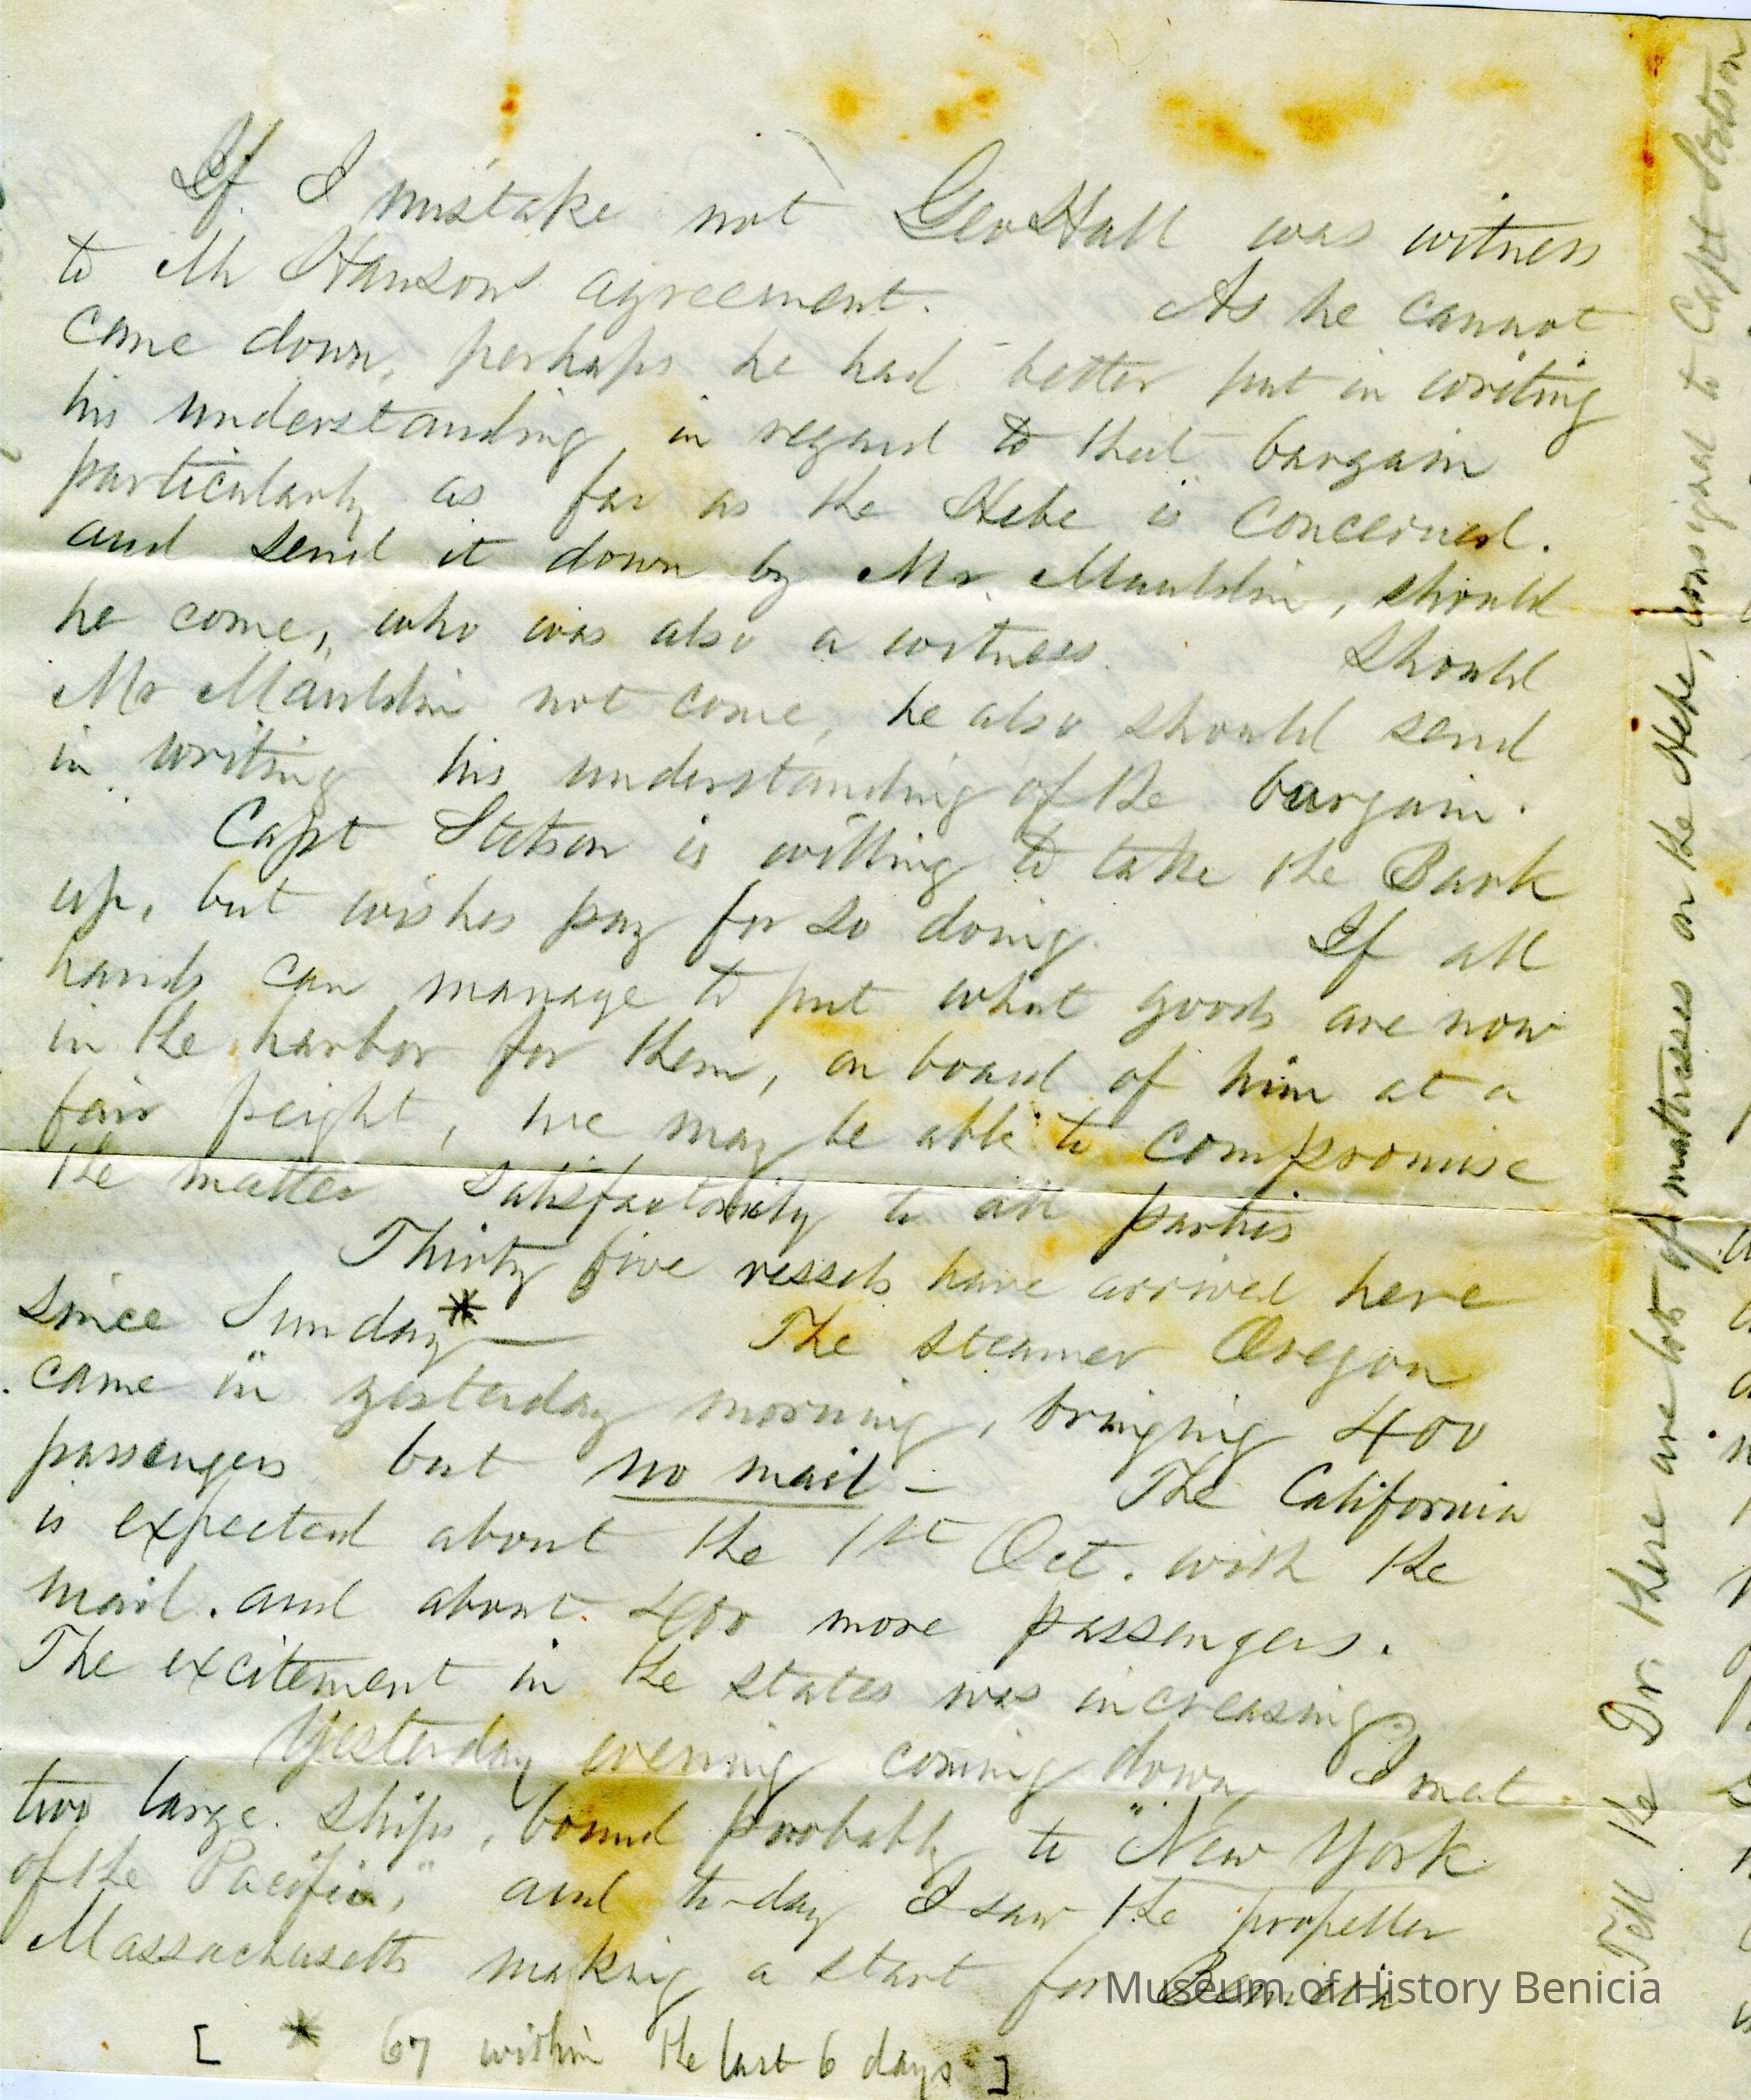 If I mistake not Geo Hall was witness
to Mr Hanson's agreement. As he cannot
come down, perhaps he had better put in writing
his understanding in regard to that bargain
particularly as far as the Hebe is concerned.
and send it down by Mr. Mauldin, should
he come, who was also a witness. Should
Mr Mauldin not come, he also should send
in writing his understanding of the bargain.
Capt Stetson is willing to take the Bark
up, but wishes pay for so doing. If all
hands can manage to put what goods are now
in the harbor for them, on board of him at a
fair freight, we may be able to compromise
the matter satisfactorily to all parties
Thirty five vessels have arrived here
since Sunday* — The steamer Oregon
came in yesterday morning, bringing 400
passengers but no mail — The California
is expected about the 1st Oct. with the
mail. and about 400 more passengers.
The excitement in the states was increasing.
Yesterday evening coming down, I met
two large ships, bound probably to "New York
of the Pacific," and to-day I saw the propeller
Massachusetts making a start for Benicia
[ * 67 within the last 6 days ]
Tell the Dr. there are lots of mattresses on the Hebe, consigned to Capt Stetson
Museum of History Benicia